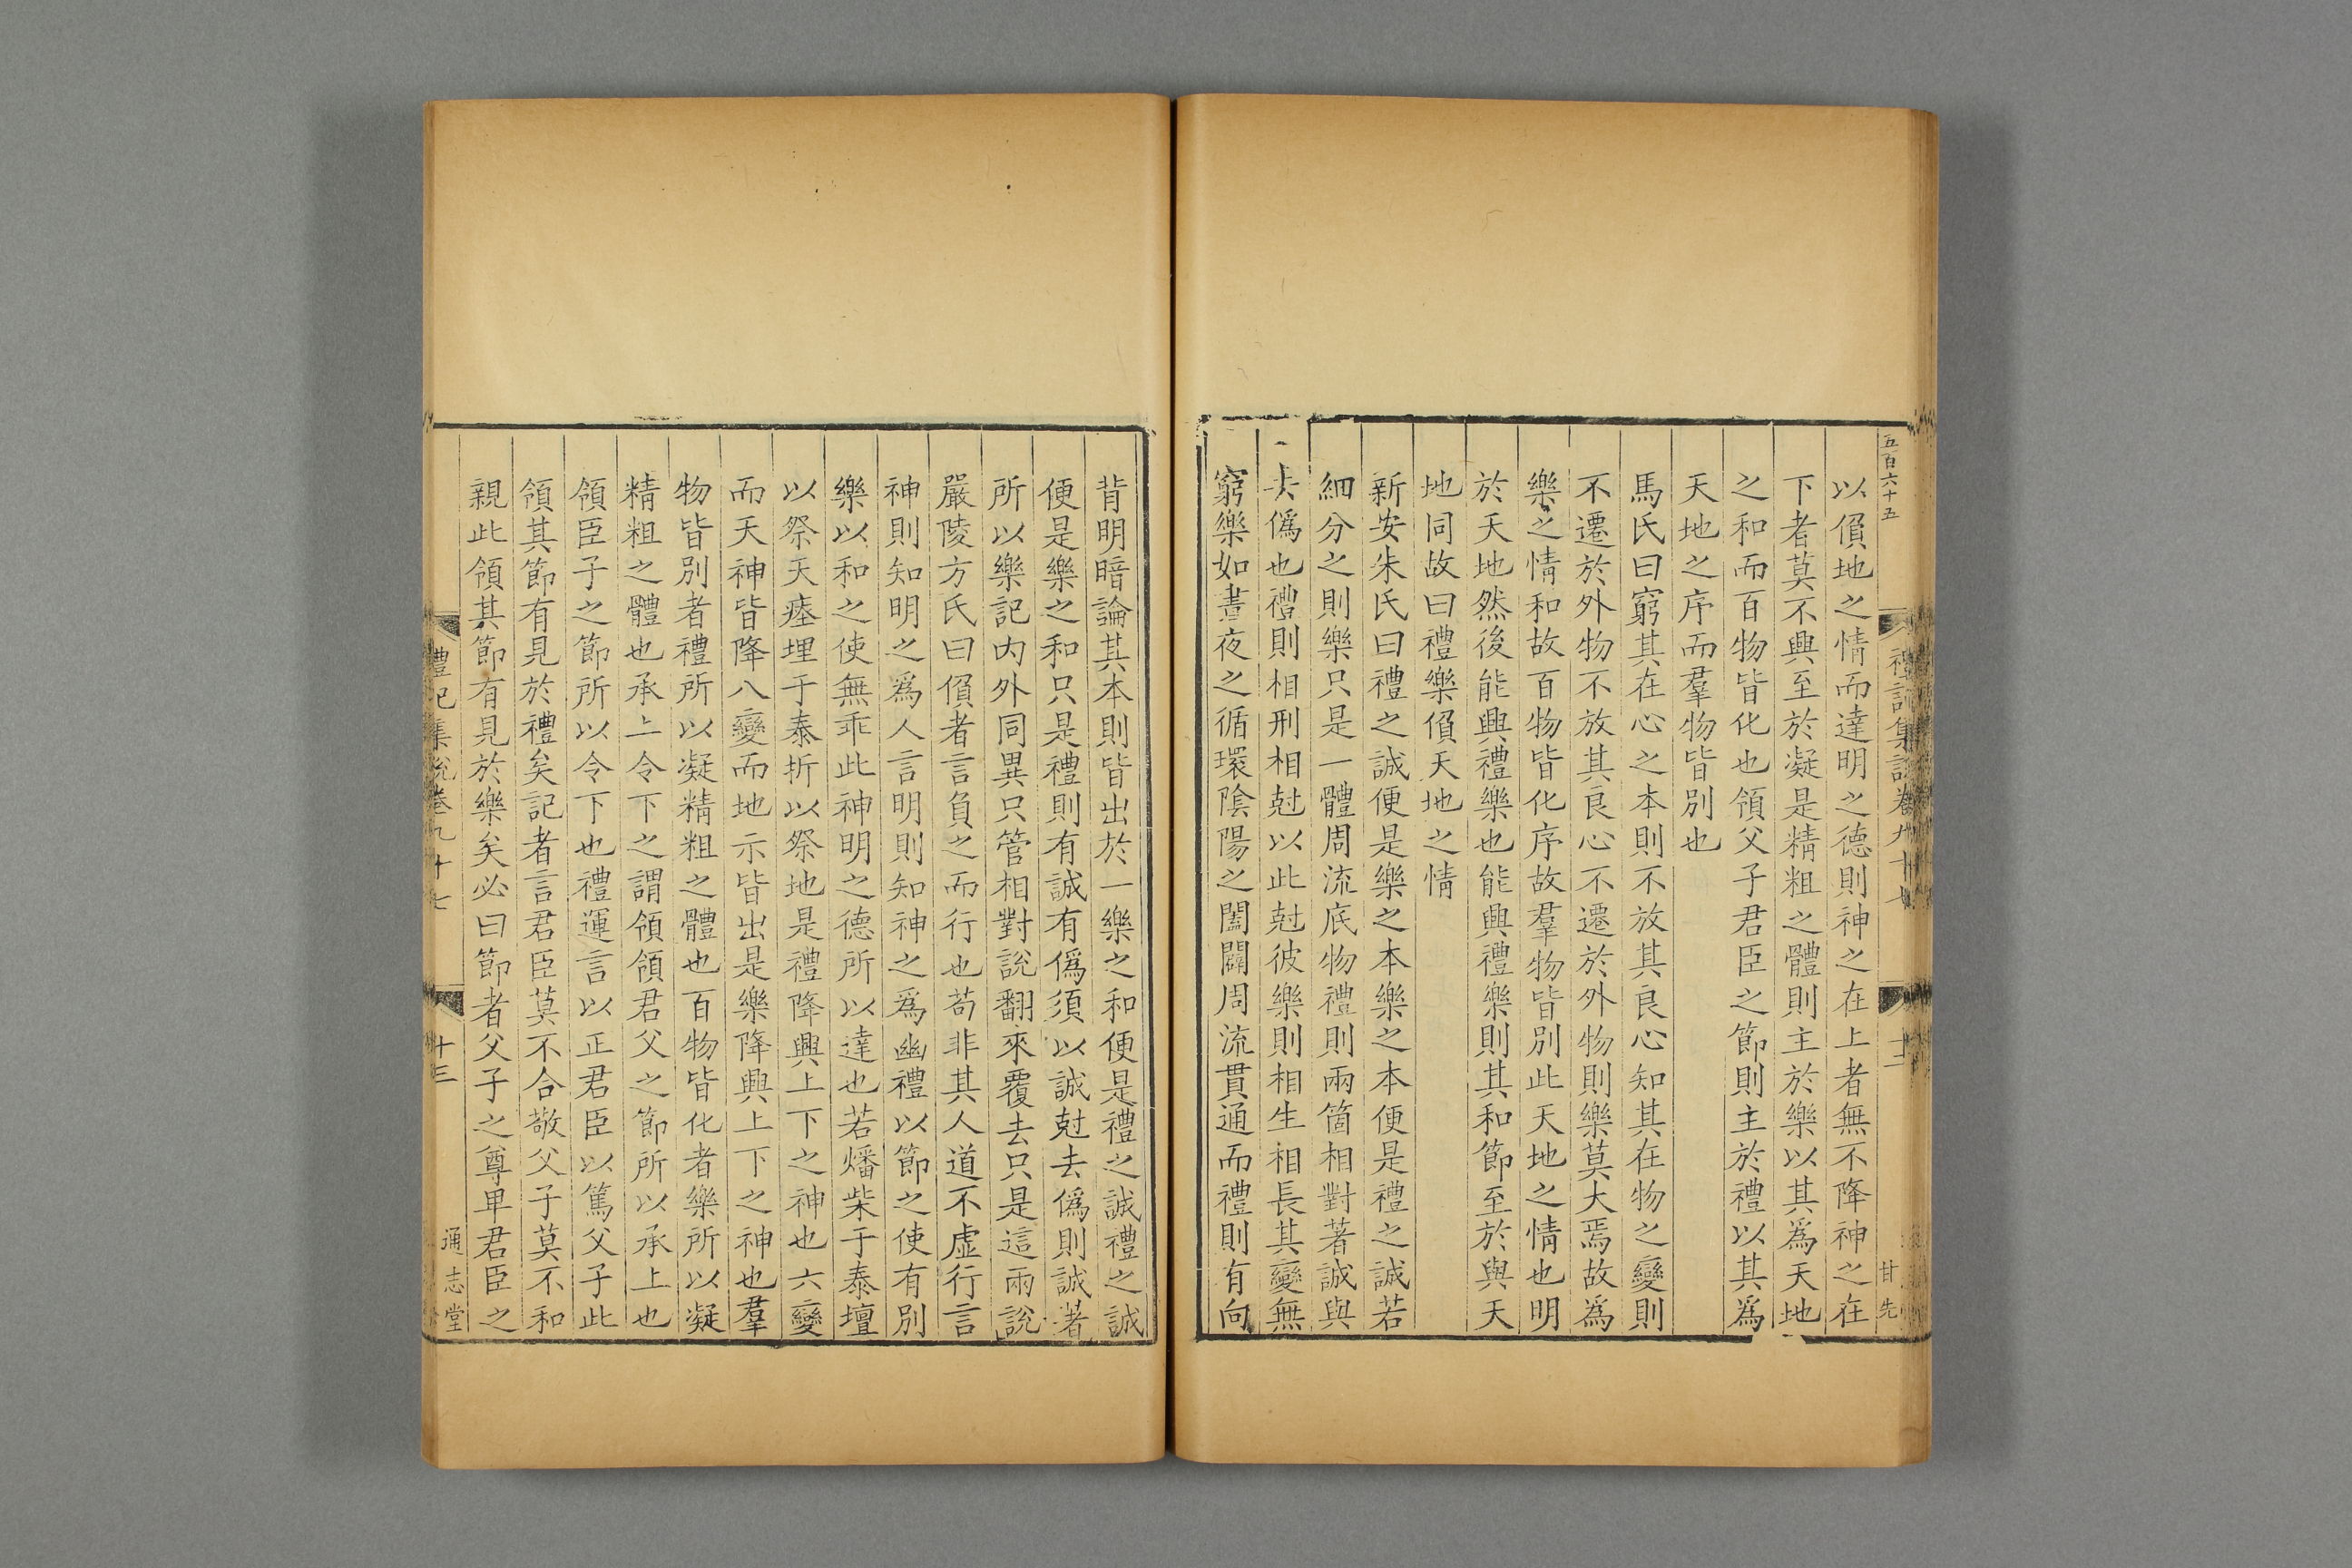 五百六十五
禮記集說卷九十七
十二
甘先
以偩地之情而達明之德則神之在上者無不降神之在
下者莫不興至於凝是精粗之體則主於樂以其為天地
之和而百物皆化也領父子君臣之節則主於禮以其為
天地之序而羣物皆別也
馬氏曰窮其在心之本則不放其良心知其在物之變則
不遷於外物不放其良心不遷於外物則樂莫大焉故為
樂之情和故百物皆化序故羣物皆別此天地之情也明
於天地然後能興禮樂也能興禮樂則其和節至於與天
地同故曰禮樂偩天地之情
新安朱氏曰禮之誠便是樂之本樂之本便是禮之誠若
細分之則樂只是一體周流底物禮則兩箇相對著誠與
去偽也禮則相刑相尅以此尅彼樂則相生相長其變無
窮樂如晝夜之循環陰陽之闔闢周流貫通而禮則有向
背明暗論其本則皆出於一樂之和便是禮之誠禮之誠
便是樂之和只是禮則有誠有偽須以誠尅去偽則誠著
所以樂記内外同異只管相對說翻來覆去只是這兩說
嚴陵方氏曰偩者言負之而行也苟非其人道不虛行言
神則知明之爲人言明則知神之爲幽禮以節之使有別
樂以和之使無乖此神明之德所以達也若燔柴于泰壇
以祭天瘞埋于泰折以祭地是禮降興上下之神也六變
而天神皆降八變而地示皆出是樂降興上下之神也羣
物皆別者禮所以凝精粗之體也百物皆化者樂所以凝
精粗之體也承上令下之謂領領君父之節所以承上也
領臣子之節所以令下也禮運言以正君臣以篤父子此
領其節有見於禮矣記者言君臣莫不合敬父子莫不和
親此領其節有見於樂矣必曰節者父子之尊卑君臣之
禮記集說卷九十七
十三
通志堂